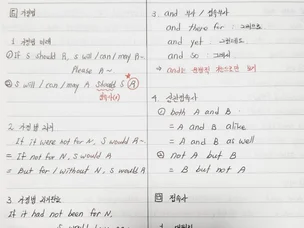 1. 가정법 미래
① If S should R, S will / can / may R~
Please R~
② S will / can / may R should S R
접속사(x)
2. 가정법 과거
If it were not for N, S would R
= If not for N, S would R
= But for / without N, S would R
3. 가정법 과거완료
If it had not been for N,
3. and 부사 / 접속부사
and there for : 그러므로
and yet : 그럼에도
and so : 그래서
4. 상관접속사
① both A and B
= A and B alike
= A and B as well
② not A but B
= B but not A
접속사